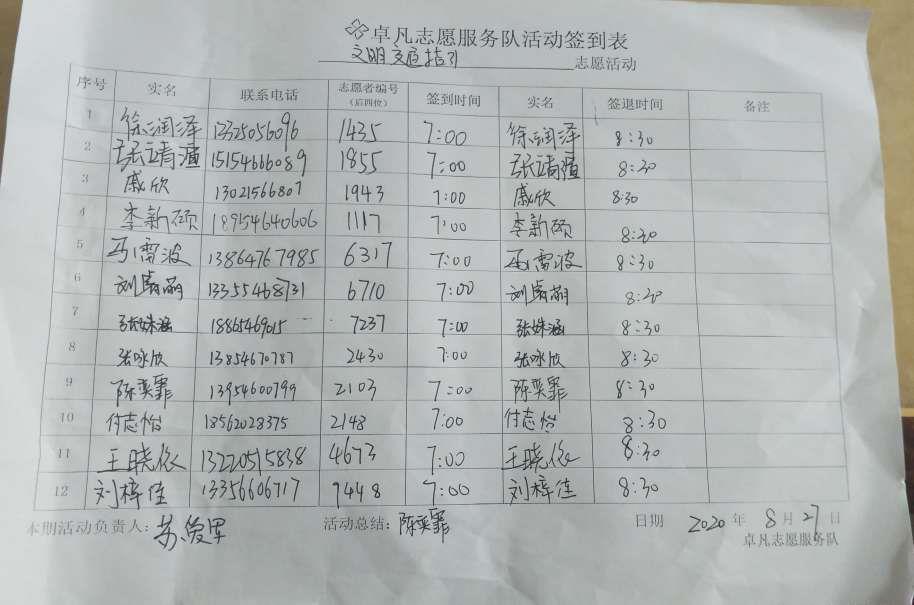 卓凡志愿服务队活动签到表
文明交通指引 志愿活动
序号 实名 联系电话 志愿者编号(后四位) 签到时间 实名 签退时间 备注
1 徐润泽 13325056096 1435 7:00 徐润泽 8:30
2 15154666089 1855 7:00 8:30
3 戚欣 13021566807 1943 7:00 戚欣 8:30
4 李新硕 18954640606 1117 7:00 李新硕 8:30
5 马雷波 13864767985 6317 7:00 马雷波 8:30
6 13355468731 6710 7:00 8:30
7 张姝涵 7237 7:00 张姝涵 8:30
8 张咏欣 13854670787 2430 7:00 张咏欣 8:30
9 陈奕霏 13954600799 2103 7:00 陈奕霏 8:30
10 付志怡 18562028375 2148 7:00 付志怡 8:30
11 王晓依 13220515838 4673 7:00 王晓依 8:30
12 刘梓佳 13356606717 9448 7:00 刘梓佳 8:30
本期活动负责人: 苏爱军 活动总结: 陈奕霏 日期 2020 年 8 月 27 日
卓凡志愿服务队